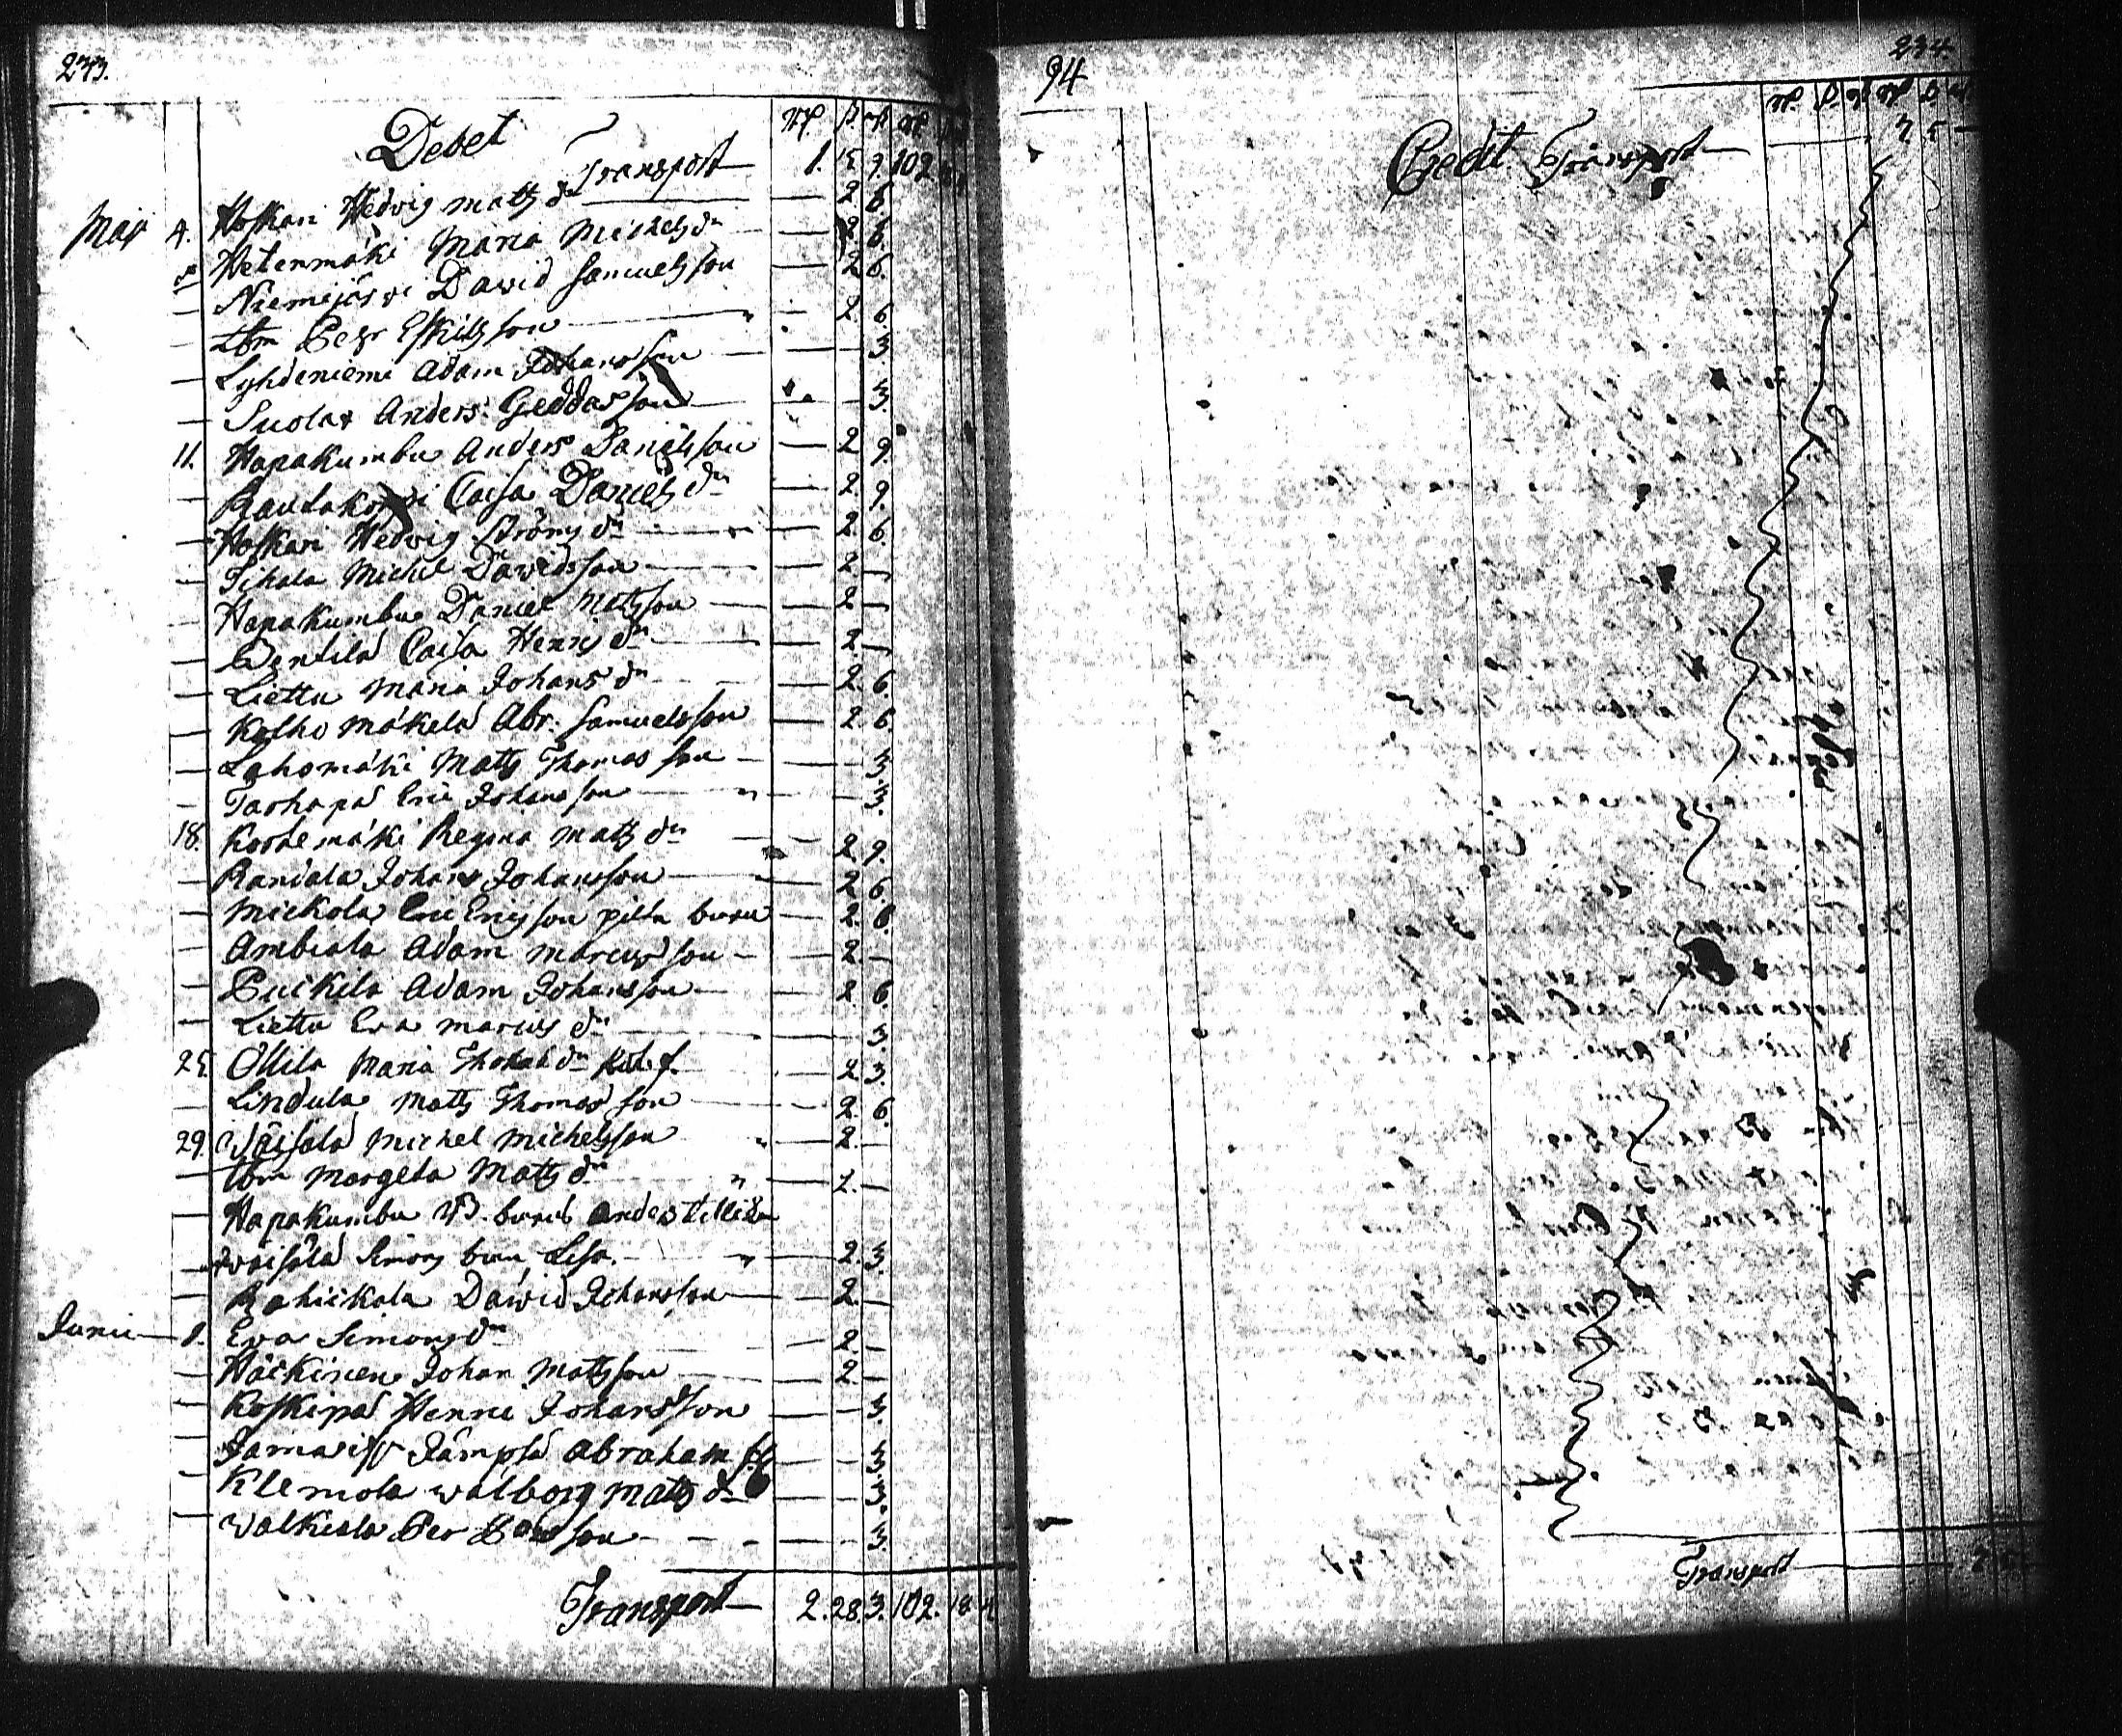 233.
Debet
Transport 1. 15 9. 102.
Maij 4. Hoskari Hedvig Matts dr 2. 6
Hetenmäki Maria Michels dr 2. 6.
Niemijärvi David Samuelsson 2 6.
Ibm Pehr Eskilsson 2 6.
Lyhdeniemi Adam Johansson 3.
Suolax Anders Geddasson 3.
11. Hapakumbu Anders Danielsson 2 9.
Raudakorpi Caisa Daniels dr 2. 9.
Hoskari Hedvig Ströms dr 2. 6.
Tikala Michel Davidsson 2.
Hapakumbu Daniel Mattsson 2
Pentilä Caisa Henrs dr 2
Liettu Maria Johans dr 2. 6.
Kalho Mäkelä Abr. Samuelsson 2 6.
Lahomäki Matts Thomasson 3
Tarhapä Eric Johansson 3.
18. Koskemäki Regina Matts dr 2 9.
Raniala Johan Johansson 2 6
Mickola Eric Ericsson pilta barn 2 6.
Ambiala Adam Marcusson 2
Puikila Adam Johansson 2 6.
Liettu Eva Marcus dr 3.
25. Ollila Maria Thomas dr 2. 3.
Lindula Matts Thomasson 2. 6.
29. Wäisälä Michel Michelsson 2.
Ibm Margeta Matts dr 2.
Hapakumbu barns Anders
Wäisälä Simons barn Lisa 2. 3.
Rahickala David Johansson 2.
Junii 1. Eva Simons dr 2.
Häckinen Johan Mattsson 2.
Koskipä Henric Johansson 3
Jämpsä Abraham 3
Klemola Walborg Matts dr 3.
Walkiala Per 3.
Transport 2. 28 3. 102. 18 4
94
234.
Credit Transport 7. 5
Transport 7. 5